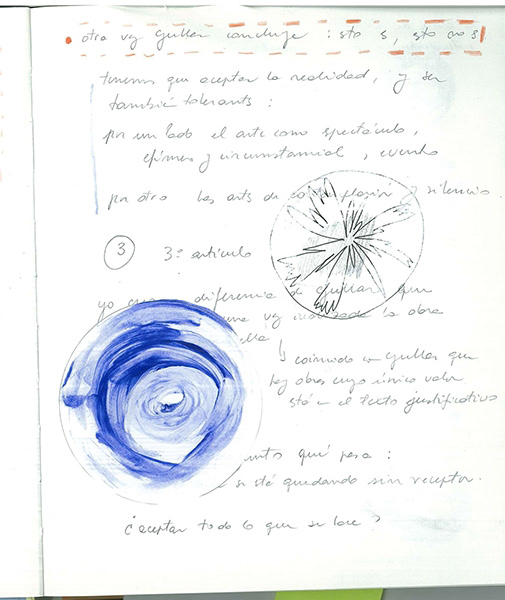 otra vez Gullar concluye : sto s, sto no s
tenemos que aceptar la realidad, y ser
también tolerants :
por un lado el arte como spectáculo,
efímero y circunstancial, evento
por otro las arts de y silencio
3 3º artículo
yo diferencia de Gullar que
una vez la obra
coincido con Gullar que
hay obras cuyo único valor
stá en el texto justificativo
qué pasa :
se stá quedando sin receptor.
¿aceptar todo lo que se hace ?